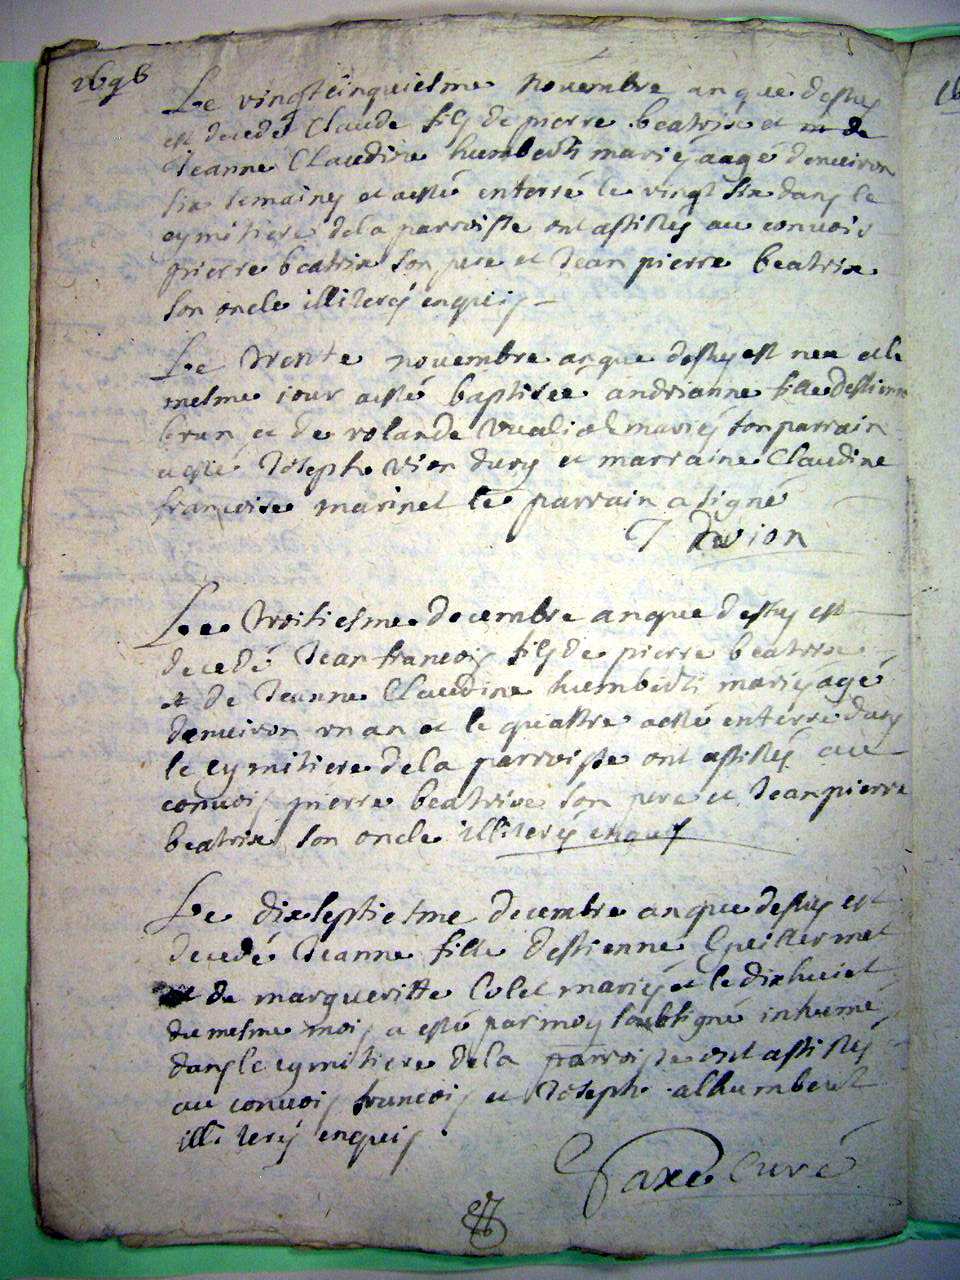 1696
Le vingtcinquiesme novembre an que dessus
est decedé Claude fils de pierre beatrix et de
Jeanne Claudine humbert mariés aagé denuiron
six semaines et a esté enterré le vingt six dans le
cymitiere de la parroisse ont assistés au conuois
pierre beatrix son pere et Jean pierre beatrix
son oncle illiterés enquis
Le trente novembre an que dessus est nee et le
mesme iour a esté baptisée andrianne fille destienne
brun et de rolande mariés son parrain
a esté Joseph vion dury et marraine Claudine
francoise marinet le parrain a signé
J duvion
Le troisiesme decembre an que dessus est
decedé Jean francois fils de pierre beatrix
et de Jeanne Claudine humbert mariés agé
denuiron vn an et le quattre a esté enterré dans
le cymitiere de la parroisse ont assistés au
conuois pierre beatrix son pere et Jean pierre
beatrix son oncle illiterés enquis
Le dixseptiesme decembre an que dessus est
decedé Jeanne fille destienne Guillermet
et de margueritte Colet mariés et le dixhuiet
du mesme mois a esté par moy soubsigné inhumé
dans le cymitiere de la parroisse ont assistés
au conuois francois et Joseph alhumbert
illiterés enquis
Saxe Curé